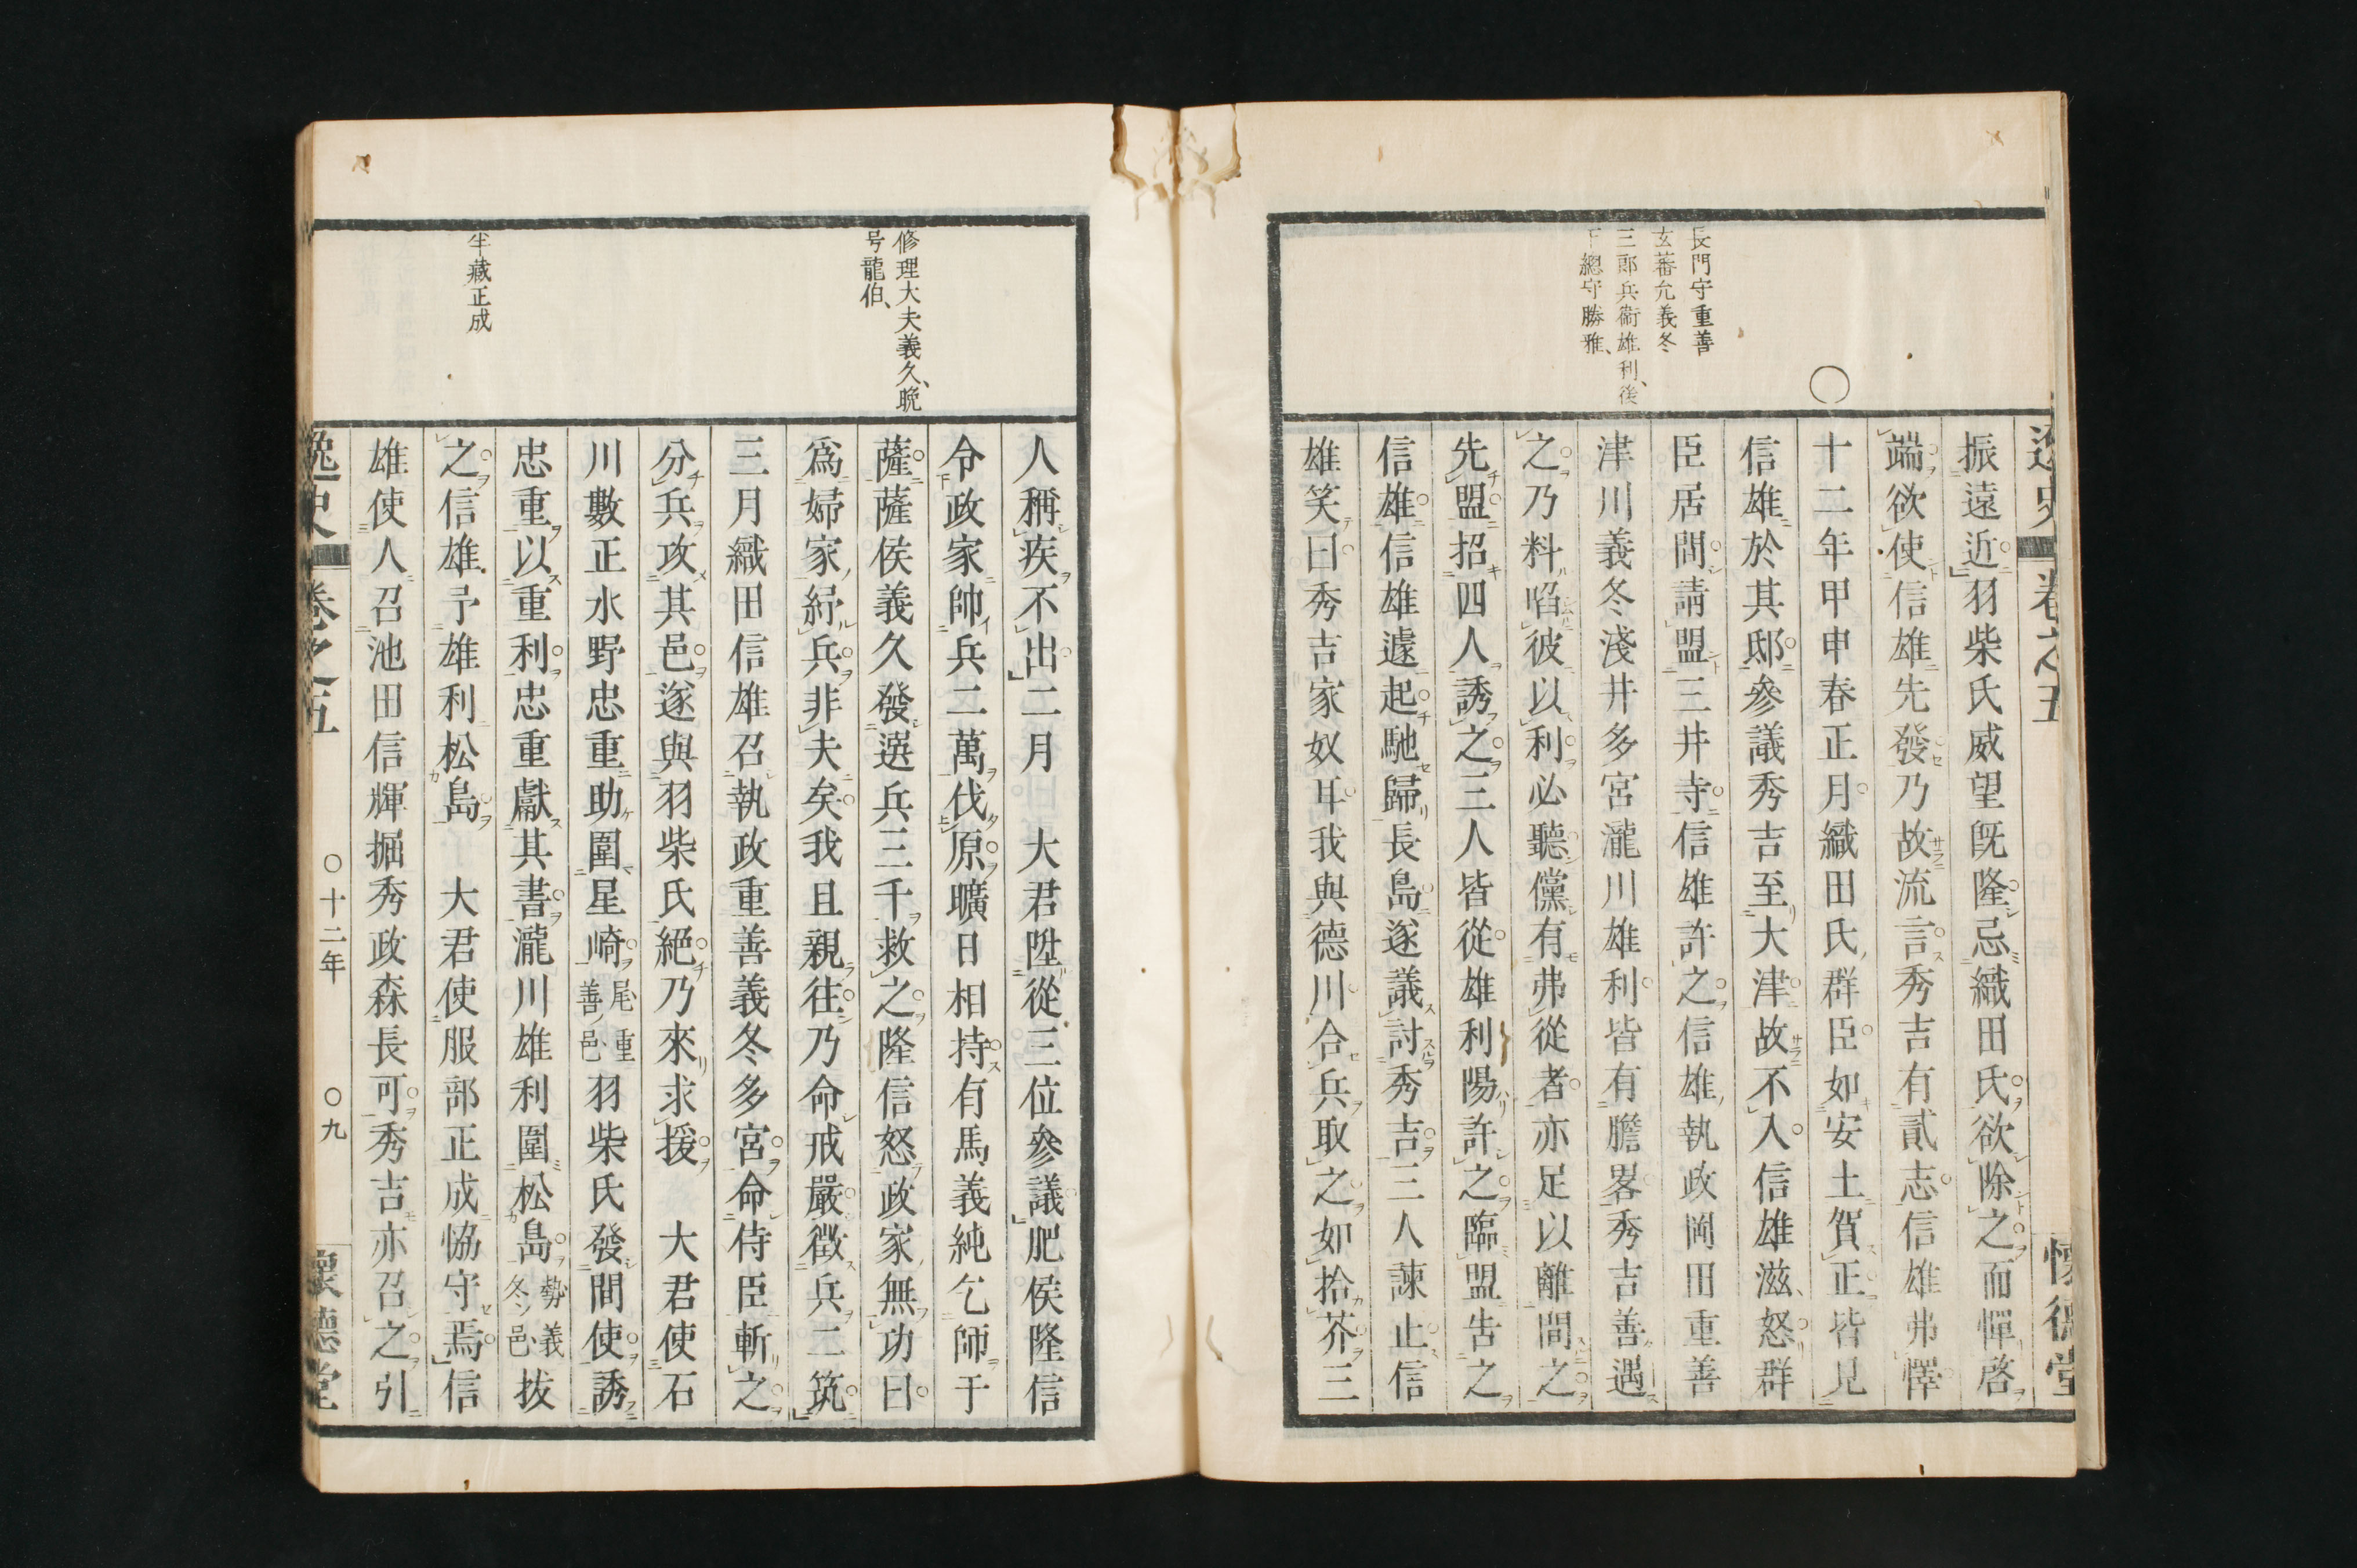 逸史 卷之五 懷德堂
長門守重善
玄蕃允義冬
三郎兵衞雄利、後
下總守勝雅、
振遠近羽柴氏威望既隆忌織田氏欲除之而憚啓
端欲使信雄先發乃故流言秀吉有貳志信雄弗懌
十二年甲申春正月織田氏群臣如安土賀正皆見
信雄於其邸參議秀吉至大津故不入信雄滋怒群
臣居間請盟三井寺信雄許之信雄執政岡田重善
津川義冬淺井多宮瀧川雄利皆有膽畧秀吉善遇
之乃料啗彼以利必聽儻有弗從者亦足以離間之
先盟招四人誘之三人皆從雄利陽許之臨盟告之
信雄信雄遽起馳歸長島遂議討秀吉三人諫止信
雄笑曰秀吉家奴耳我與德川合兵取之如拾芥三
修理大夫義久、晩
号龍伯、
半藏正成
人稱疾不出二月 大君陞從三位參議肥侯隆信
令政家帥兵二萬伐原曠日相持有馬義純乞師于
薩薩侯義久發選兵三千救之隆信怒政家無功曰
爲婦家紓兵非夫矣我且親往乃命戒嚴徵兵二筑
三月織田信雄召執政重善義冬多宮命侍臣斬之
分兵攻其邑遂與羽柴氏絕乃來求援 大君使石
川數正水野忠重助圍星崎尾重善邑羽柴氏發間使誘
忠重以重利忠重獻其書瀧川雄利圍松島勢義冬邑拔
之信雄予雄利松島 大君使服部正成協守焉信
雄使人召池田信輝掘秀政森長可秀吉亦召之引
逸史 卷之五 〇十二年 〇九 懷德堂